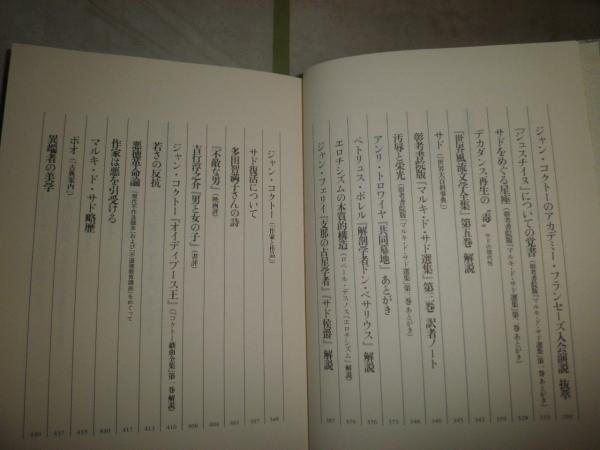 ジャン・コクトーのアカデミー・フランセーズ入会演説 抜萃
『ジュスチイヌ』についての覚書（彰考書院版『マルキ・ド・サド選集』第一巻 あとがき）
サドをめぐる星座（彰考書院版『マルキ・ド・サド選集』第二巻 あとがき）
デカダンス再生の〝毒〟 サドの現代性
『世界風流文学全集』第五巻 解説
サド（『世界大百科事典』）
彰考書院版『マルキ・ド・サド選集』第三巻 訳者ノート
汚辱と栄光（彰考書院版『マルキ・ド・サド選集』第三巻 あとがき）
アンリ・トロワイヤ『共同墓地』あとがき
ペトリュス・ボレル『解剖学者ドン・ベサリウス』解説
エロチシズムの本質的構造（ロベール・デスノス『エロチシズム』解説）
ジャン・フェリイ『支那の占星学者』『サド侯爵』解説
ジャン・コクトー（『作家と作品』）
サド復活について
多田智満子さんの詩
『不敵な男』（映画評）
吉行淳之介『男と女の子』（書評）
ジャン・コクトー『オイディプース王』（『コクトー戯曲全集』第一巻 解説）
若さの反抗
悪徳革命論 『現代不作法読本』および『不道徳教育講座』をめぐって
作家は悪を引受ける
マルキ・ド・サド略歴
ポオ（『古典案内』）
異端者の美学